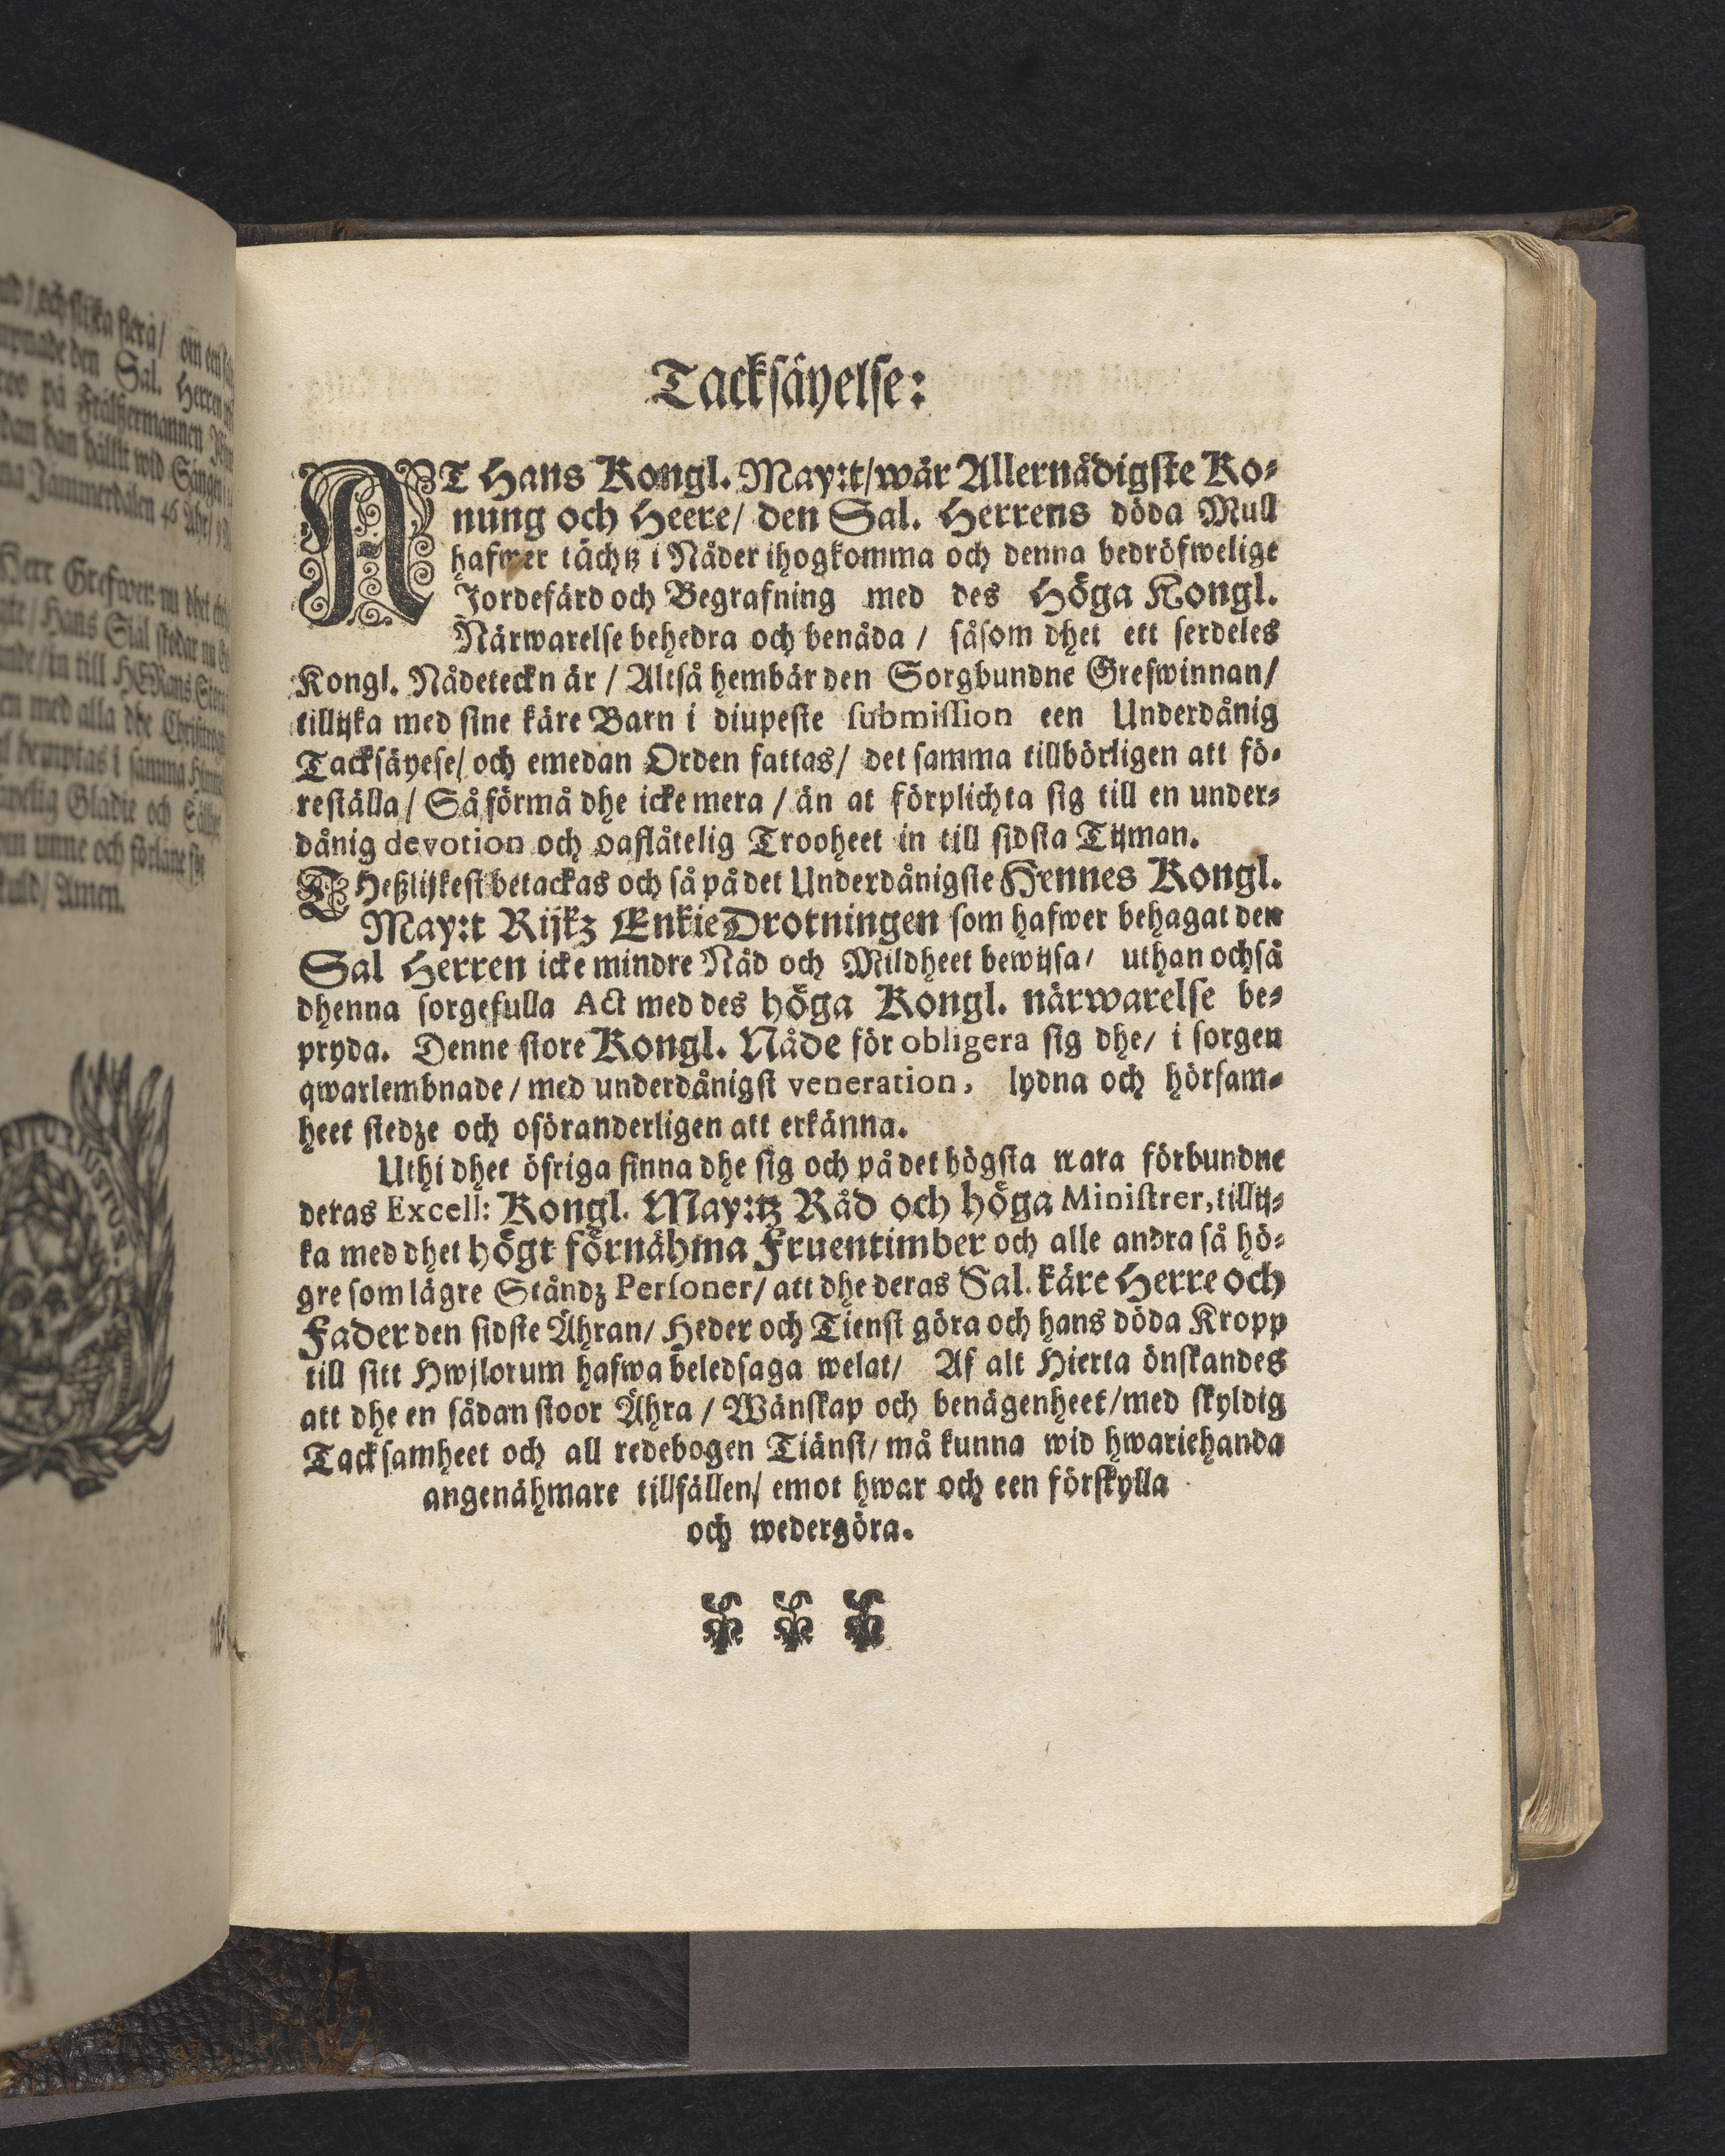 nd / och slijka flera / om en
Sal. Herren
på Frälsermannen
dan han hällt wid Säng
na Jammerdalen 46 Åhr / 9
Herr Grefwen nu dhet
Hans Siäl skodar nu
in till HERans
en med alla dhe Christrogn
i samma
welig Glädie och
om unne och förläne
skuld / Amen.
Tacksäyelse:
AT Hans Kongl. May:t/wår Allernådigste Ko-
nung och Heere/ den Sal. Herrens döda Mull
hafwer tächtz i Nåder ihogkomma och denna bedröfwelige
Jordefärd och Begrafning med des Höga Kongl.
Närwarelse behedra och benåda / såsom dhet ett serdeles
Kongl. Nådeteckn är / Altså hembär den Sorgbundne Grefwinnan/
tillijka med sine käre Barn i diupeste submission een Underdånig
Tacksäyese/ och emedan Orden fattas/ det samma tillbörligen att fö-
reställa / Så förmå dhe icke mera / än at förplichta sig till en under-
dånig devotion och oaflåtelig Trooheet in till sidsta Tijman.
THeßlijkest betackas och så på det Underdånigste Hennes Kongl.
May:t Rijkz EnkieDrotningen som hafwer behagat den
Sal Herren icke mindre Nåd och Mildheet bewijsa/ uthan ochså
dhenna sorgefulla Act med des höga Kongl. närwarelse be-
pryda. Denne store Kongl. Nåde för obligera sig dhe/ i sorgen
qwarlembnade / med underdånigst veneration, lydna och hörsam-
heet stedze och oföranderligen att erkänna.
Uthi dhet öfriga finna dhe sig och på det högsta wara förbundne
deras Excell: Kongl. May:tz Råd och höga Ministrer, tillij-
ka med dhet högt förnähma Fruentimber och alle andra så hö-
gre som lägre Ståndz Personer/ att dhe deras Sal. käre Herre och
Fader den sidste Ähran/ Heder och Tienst göra och hans döda Kropp
till sitt Hwjlorum hafwa beledsaga welat/ Af alt Hierta önskandes
att dhe en sådan stoor Ähra / Wänskap och benägenheet/med skyldig
Tacksamheet och all redebogen Tiänst/ må kunna wid hwariehanda
angenähmare tillfällen/ emot hwar och een förskylla
och wedergöra.